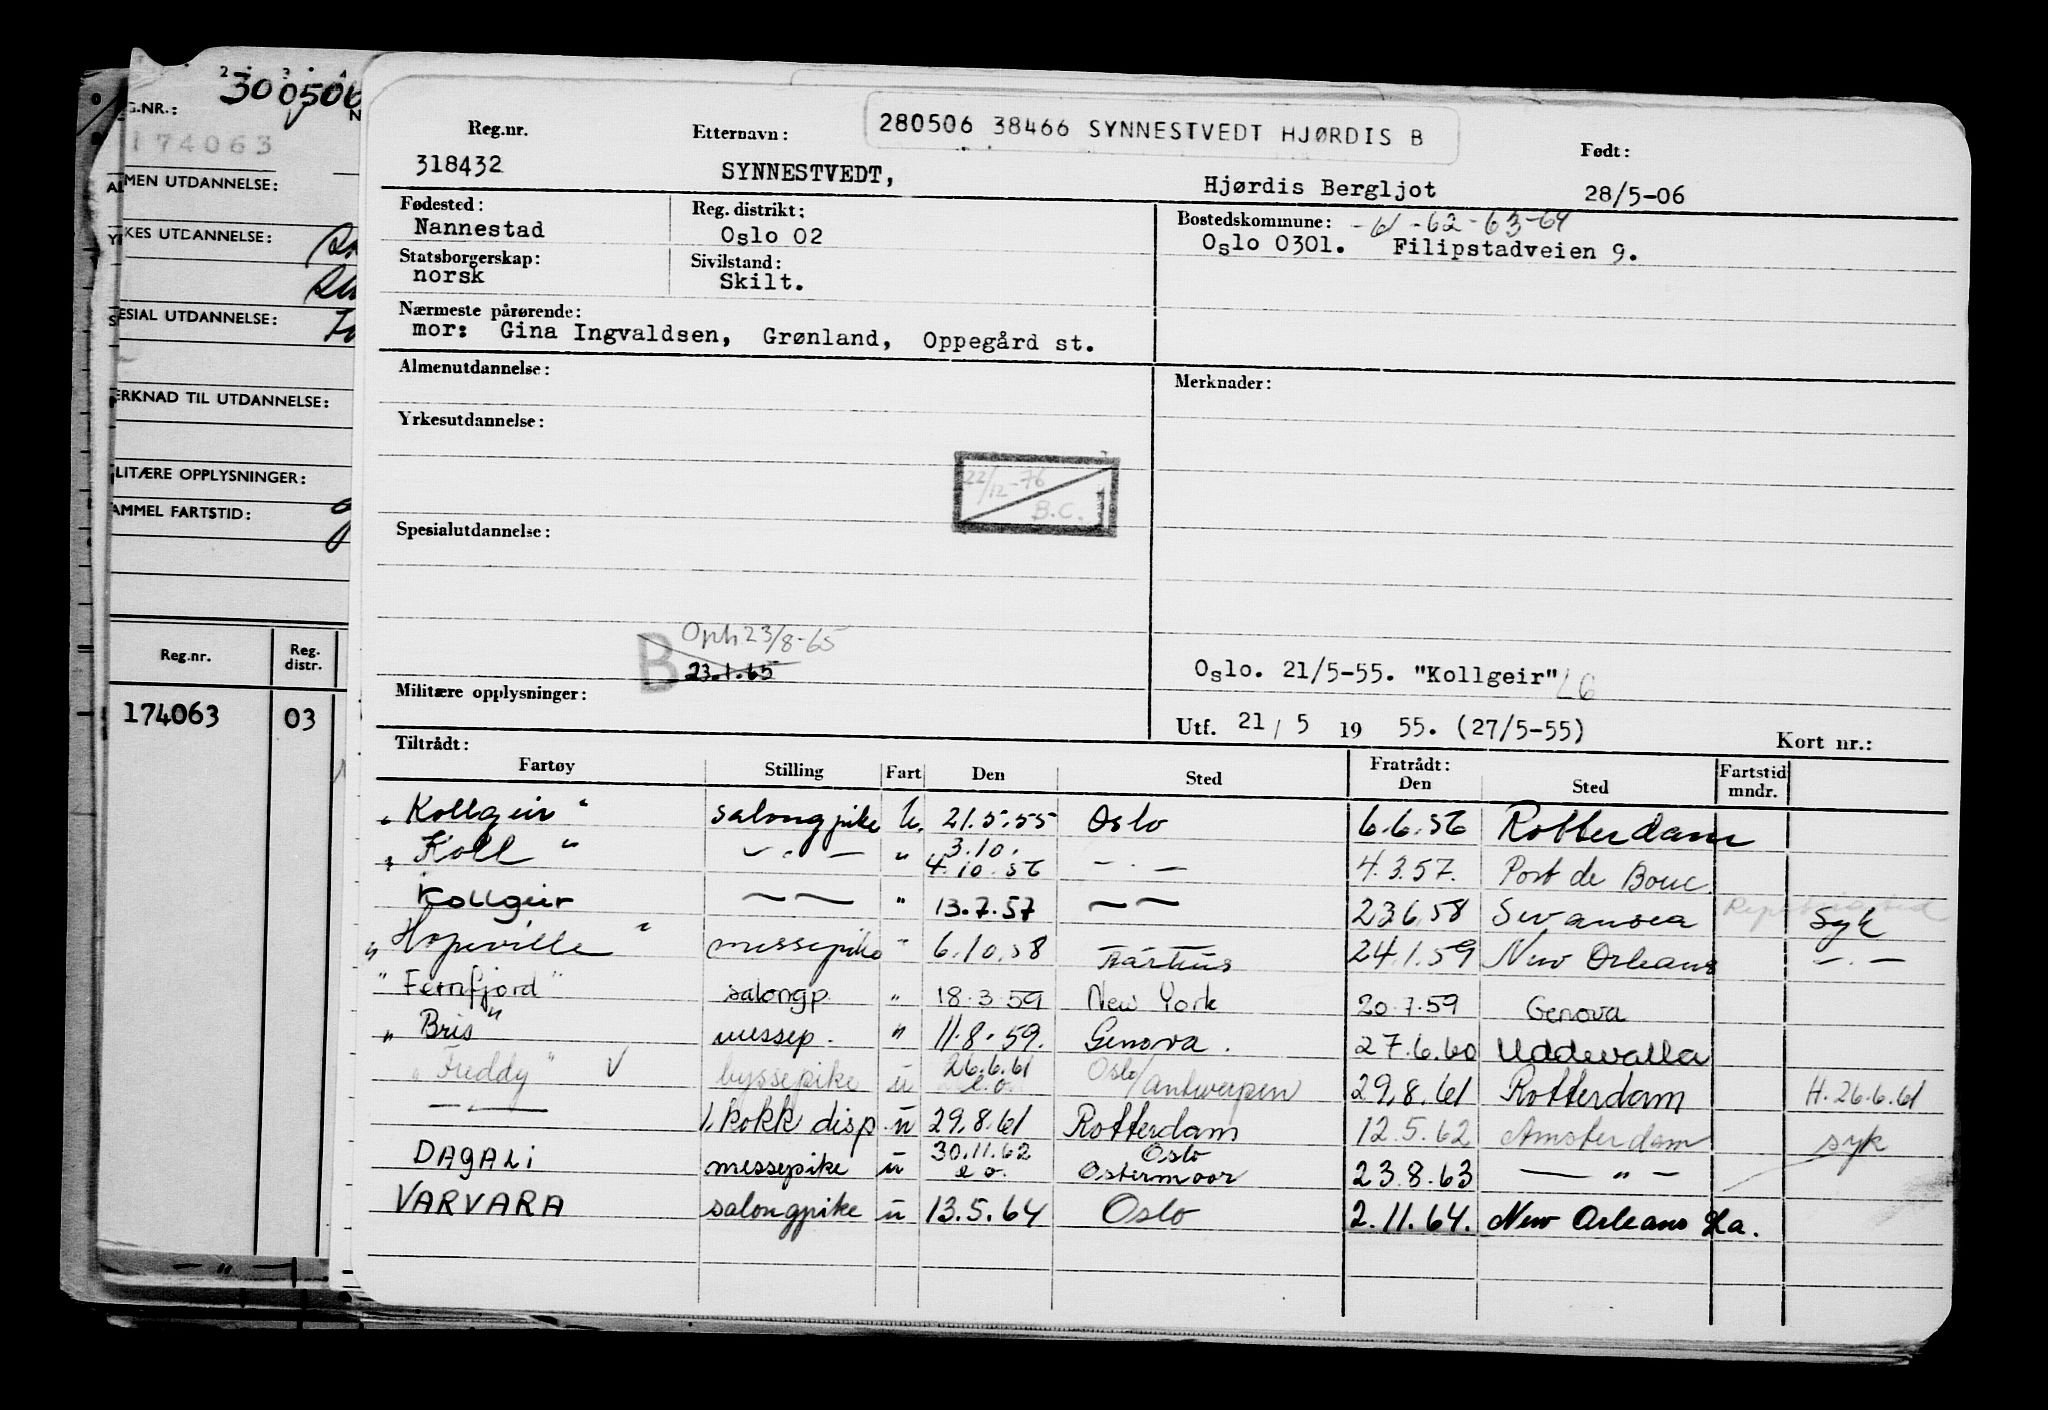 300506
G.NR.:
174063
MEN UTDANNELSE:
KES UTDANNELSE:
ESIAL UTDANNELSE:
ERKNAD TIL UTDANNELSE:
LITÆRE OPPLYSNINGER:
AMMEL FARTSTID:
Reg.nr. Reg. distr.
174063 03
280506 38466 SYNNESTVEDT HJØRDIS B
Reg.nr. Etternavn: Født:
318432 SYNNESTVEDT, Hjørdis Bergljot 28/5-06
Fødested: Reg. distrikt: Bostedskommune: -61-62-63-64
Nannestad Oslo 02 Oslo 0301. Filipstadveien 9.
Statsborgerskap: Sivilstand:
norsk Skilt.
Nærmeste pårørende:
mor: Gina Ingvaldsen, Grønland, Oppegård st.
Almenutdannelse: Merknader:
Yrkesutdannelse:
22/12-76
B.C.
Spesialutdannelse:
Oph 23/8-65
B 23.1.65
Oslo. 21/5-55. "Kollgeir"
Militære opplysninger:
Utf. 21 / 5 19 55. (27/5-55) Kort nr.:
Tiltrådt: Fratrådt: Fartstid mndr.
Fartøy Stilling Fart Den Sted Den Sted
"Kollgeir" salongpike u. 21.5.55 Oslo 6.6.56 Rotterdam
"Koll" — . — " 3.10. 4.10.56 — . — 4.3.57. Port de Bouc
Kollgeir — — " 13.7.57 — — 23.6.58 Swansea Syk
"Hopeville" messepike " 6.10.58 Aarhus 24.1.59 New Orleans — . —
"Fernfjord" salongp. " 18.3.59 New York 20.7.59 Genova
"Bris" messep. " 11.8.59. Genova. 27.6.60 Uddevalla
"Freddy" V byssepike u 26.6.61 e.o. Oslo/Antwerpen 29.8.61 Rotterdam H. 26.6.61
— . — 1. kokk disp. u 29.8.61 Rotterdam 12.5.62 Amsterdam syk
DAGALI messepike u 30.11.62 e.o. Oslo Ostermoor 23.8.63 — " —
VARVARA salongpike u 13.5.64 Oslo 2.11.64. New Orleans La.
— " —